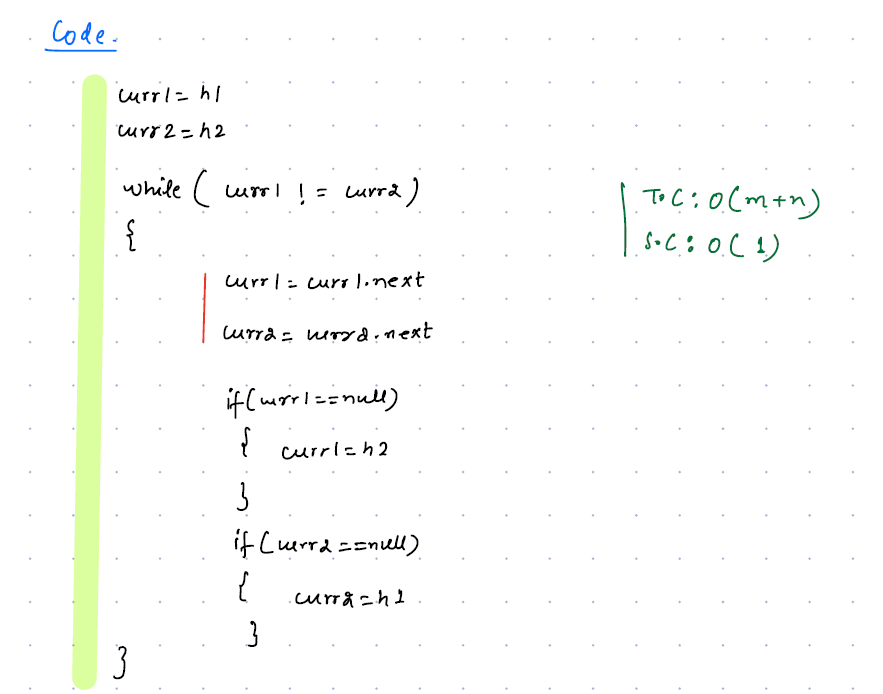 Code.
curr1 = h1
curr2 = h2
while ( curr1 != curr2 )
{
T.C : O(m+n)
S.C : O(1)
curr1 = curr1.next
curr2 = curr2.next
if(curr1==null)
{ curr1=h2
}
if(curr2==null)
{ curr2=h1
}
}